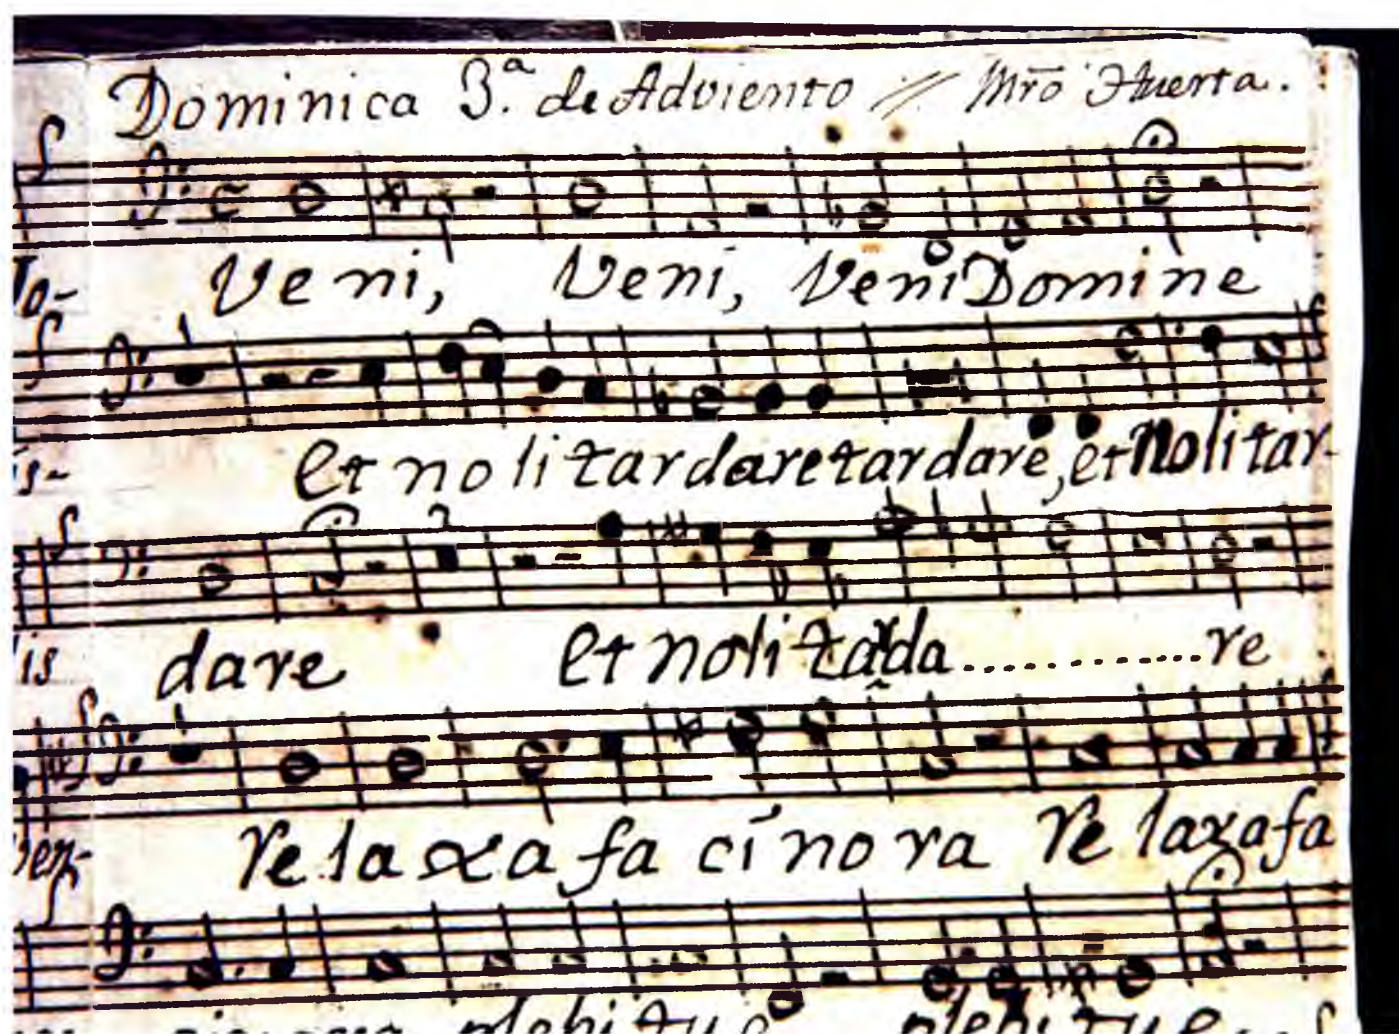 Dominica 3.ª de Adviento // Mr̃o Huerta.
Veni, Veni, Veni Domine
et noli tardare tardare, et Noli tar-
dare et noli tarda............re
relaxa facinora re laxafa
plebi tue plebi tue